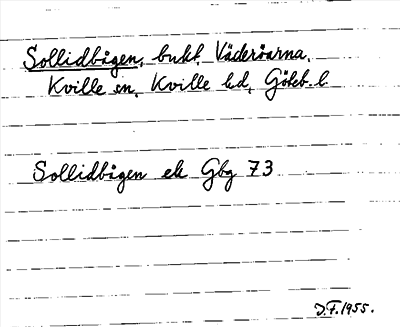 Sollidbågen, bukt, Väderöarna,
Kville sn, Kville hd, Göteb. l.
Sollidbågen ek Gbg 73
J.F. 1955.